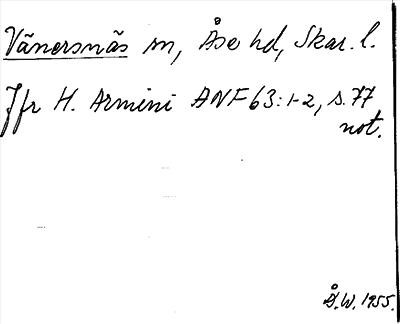 Vänersnäs sn, Åse hd, Skar. l.
Jfr H. Armini ANF 63:1-2, s. 77
not.
Å.W. 1955.